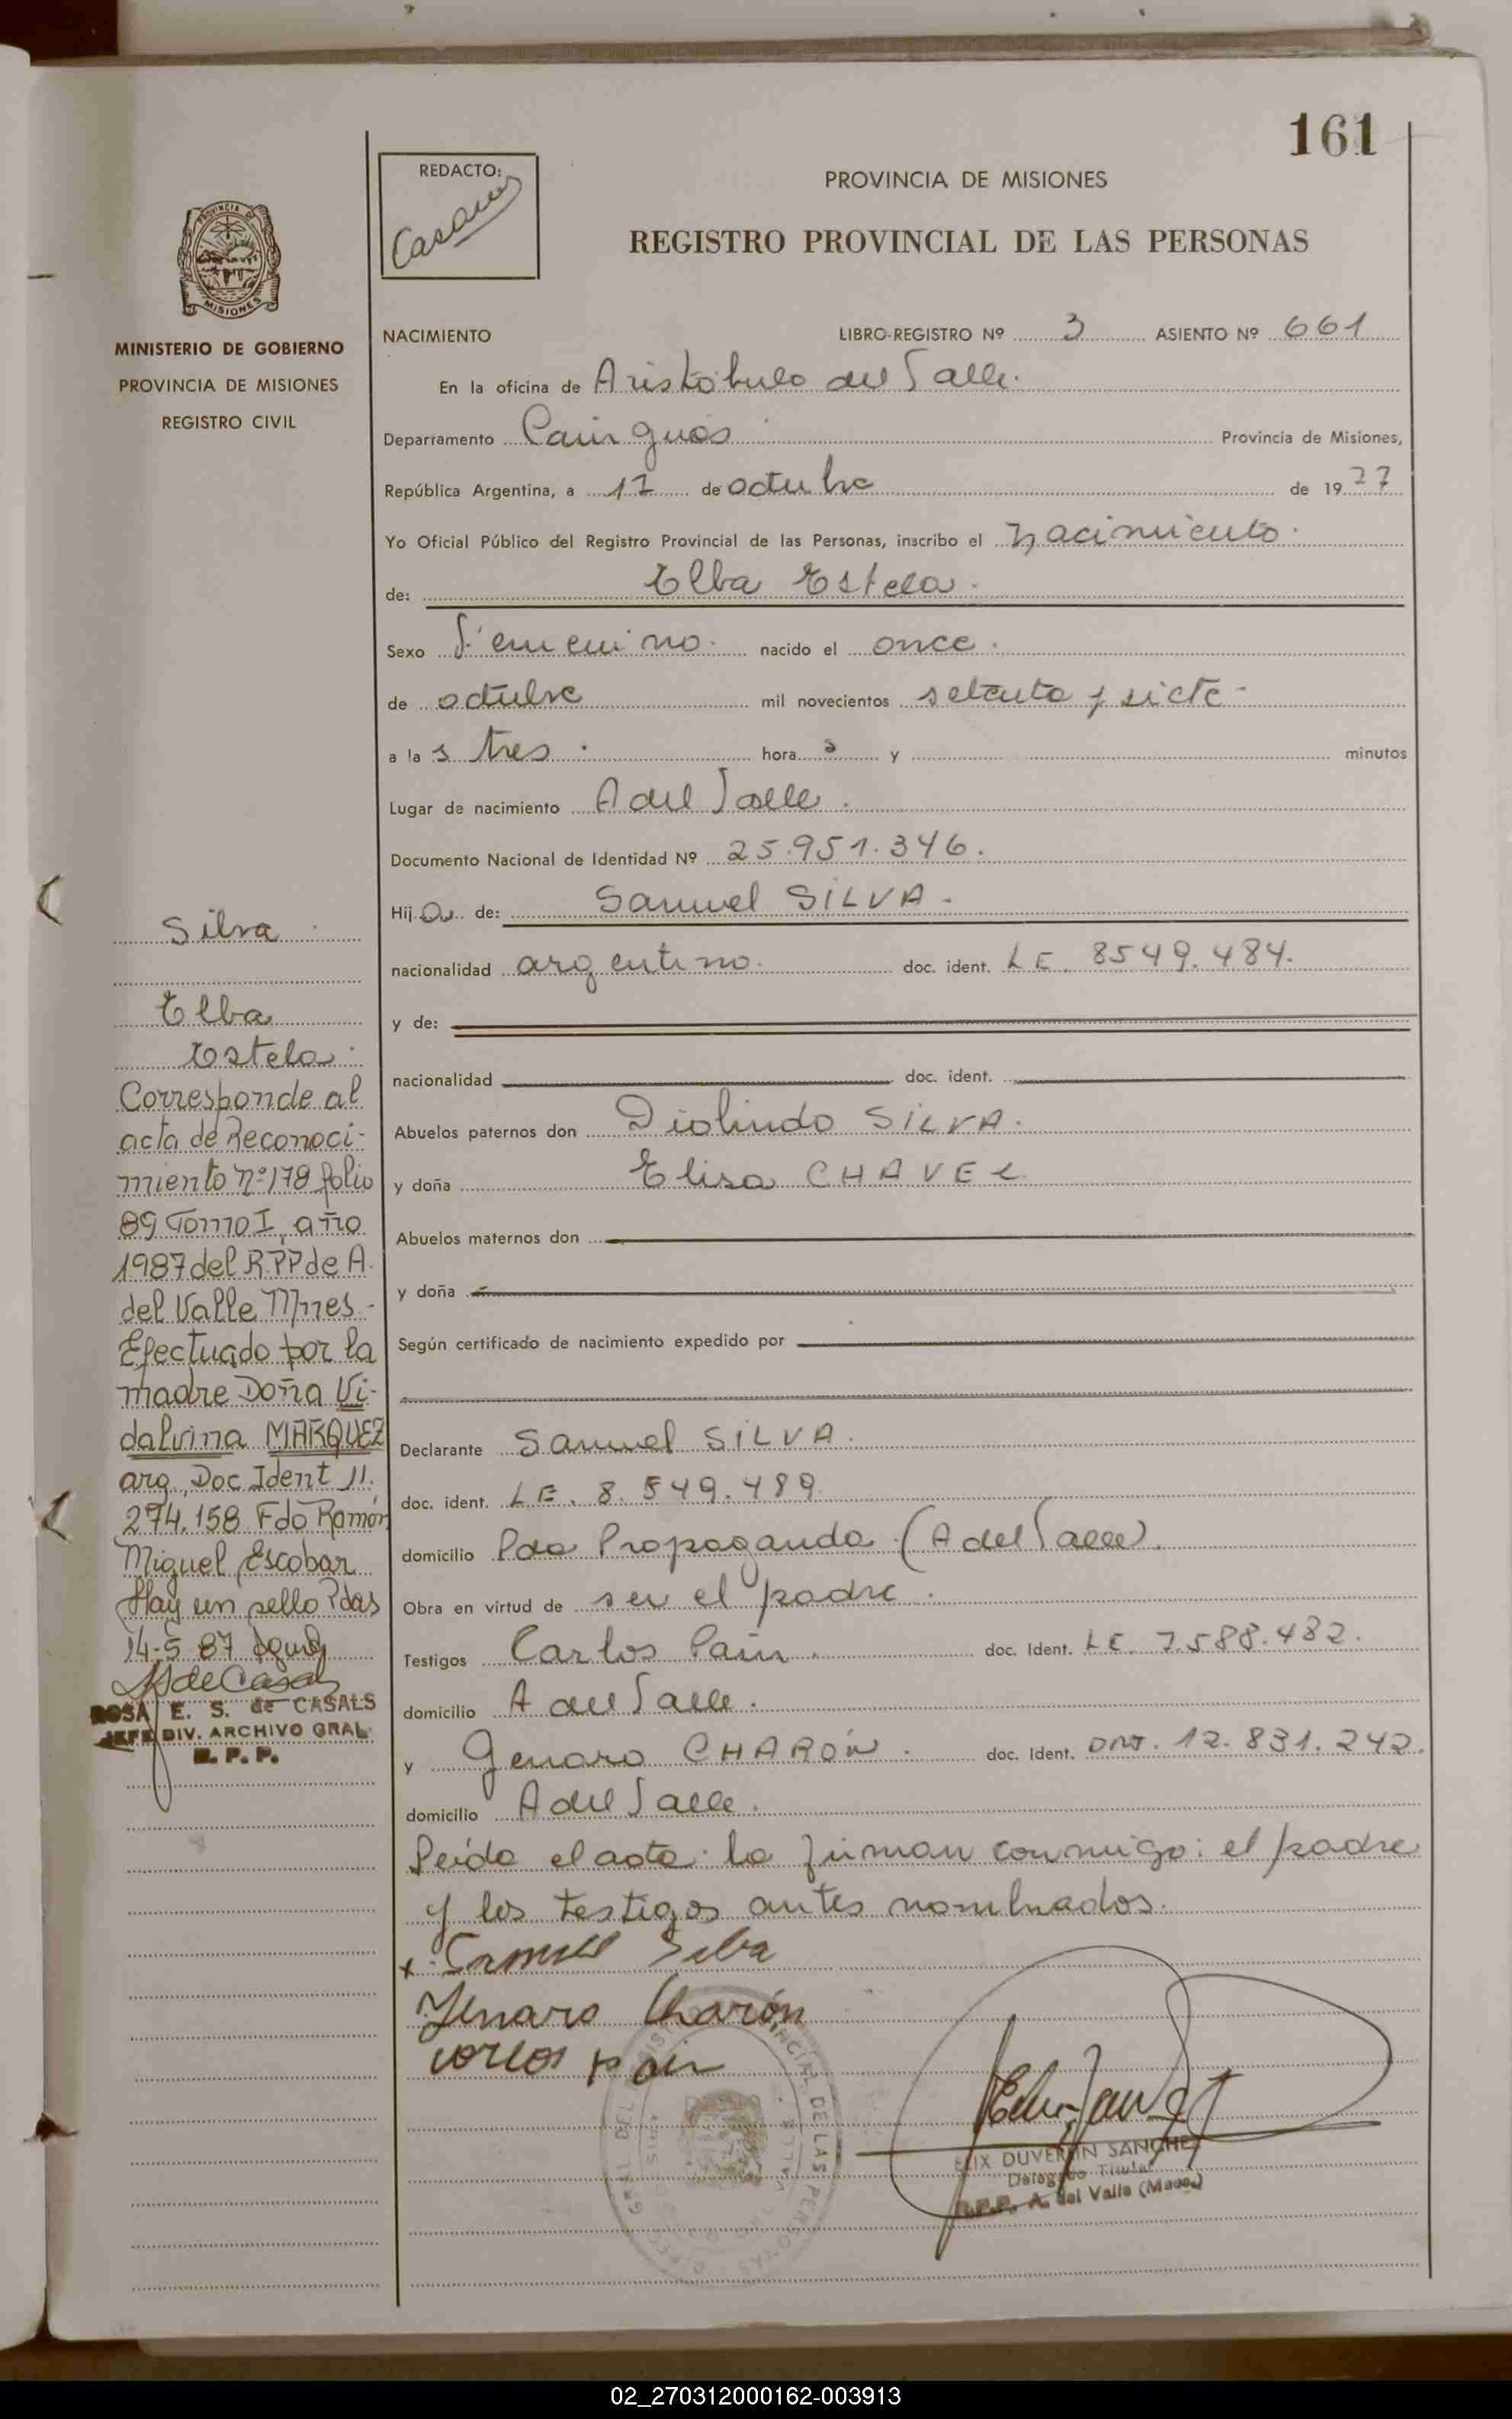 161
REDACTO:
PROVINCIA DE MISIONES
REGISTRO PROVINCIAL DE LAS PERSONAS
MISIONES
MINISTERIO DE GOBIERNO
PROVINCIA DE MISIONES
REGISTRO CIVIL
NACIMIENTO LIBRO-REGISTRO Nº 3 ASIENTO Nº 661
En la oficina de Aristóbulo del Valle.
Departamento Cainguás Provincia de Misiones,
República Argentina, a 17 de octubre de 19 77
Yo Oficial Público del Registro Provincial de las Personas, inscribo el nacimiento.
de: Elba Estela.
Sexo Femenino. nacido el once.
de octubre mil novecientos setenta y siete-
a la s tres. hora s y minutos
Lugar de nacimiento A del Valle.
Documento Nacional de Identidad Nº 25.951.346.
Hij a de: Samuel SILVA.
nacionalidad argentino. doc. ident. LE. 8549.484.
y de:
nacionalidad doc. ident.
Abuelos paternos don Diolindo SILVA.
y doña Elisa
Abuelos maternos don
y doña
Según certificado de nacimiento expedido por
Declarante Samuel SILVA.
doc. ident. LE. 8.549.489
domicilio Pdo Propaganda (A del Valle).
Obra en virtud de ser el padre.
Testigos Carlos Pain. doc. Ident. LE. 7.588.482.
domicilio A del Valle.
y Genaro CHARÓN. doc. Ident. DNI. 12.831.242.
domicilio A del Valle.
Leída el acta la firman conmigo: el padre
y los testigos antes nombrados.
x Samuel Silva
Jenaro Charón
carlos pain
ELIX DUVERLIN SANCHEZ
Delegado Titular
R.P.P. A. del Valle (Mnes.)
Silva
Elba
Estela.
Corresponde al
acta de Reconoci-
miento Nº 178 folio
89 Tomo I, año
1987 del R.P.P de A.
del Valle Mnes.-
Efectuado por la
madre Doña Vi-
dalvina MARQUEZ
arg., Doc Ident 11.
274.158 Fdo Ramón
Miguel Escobar
Hay un sello Pdas
14-5-87
ROSA E. S. de CASALS
JEFE DIV. ARCHIVO GRAL.
R. P. P.
02_270312000162-003913